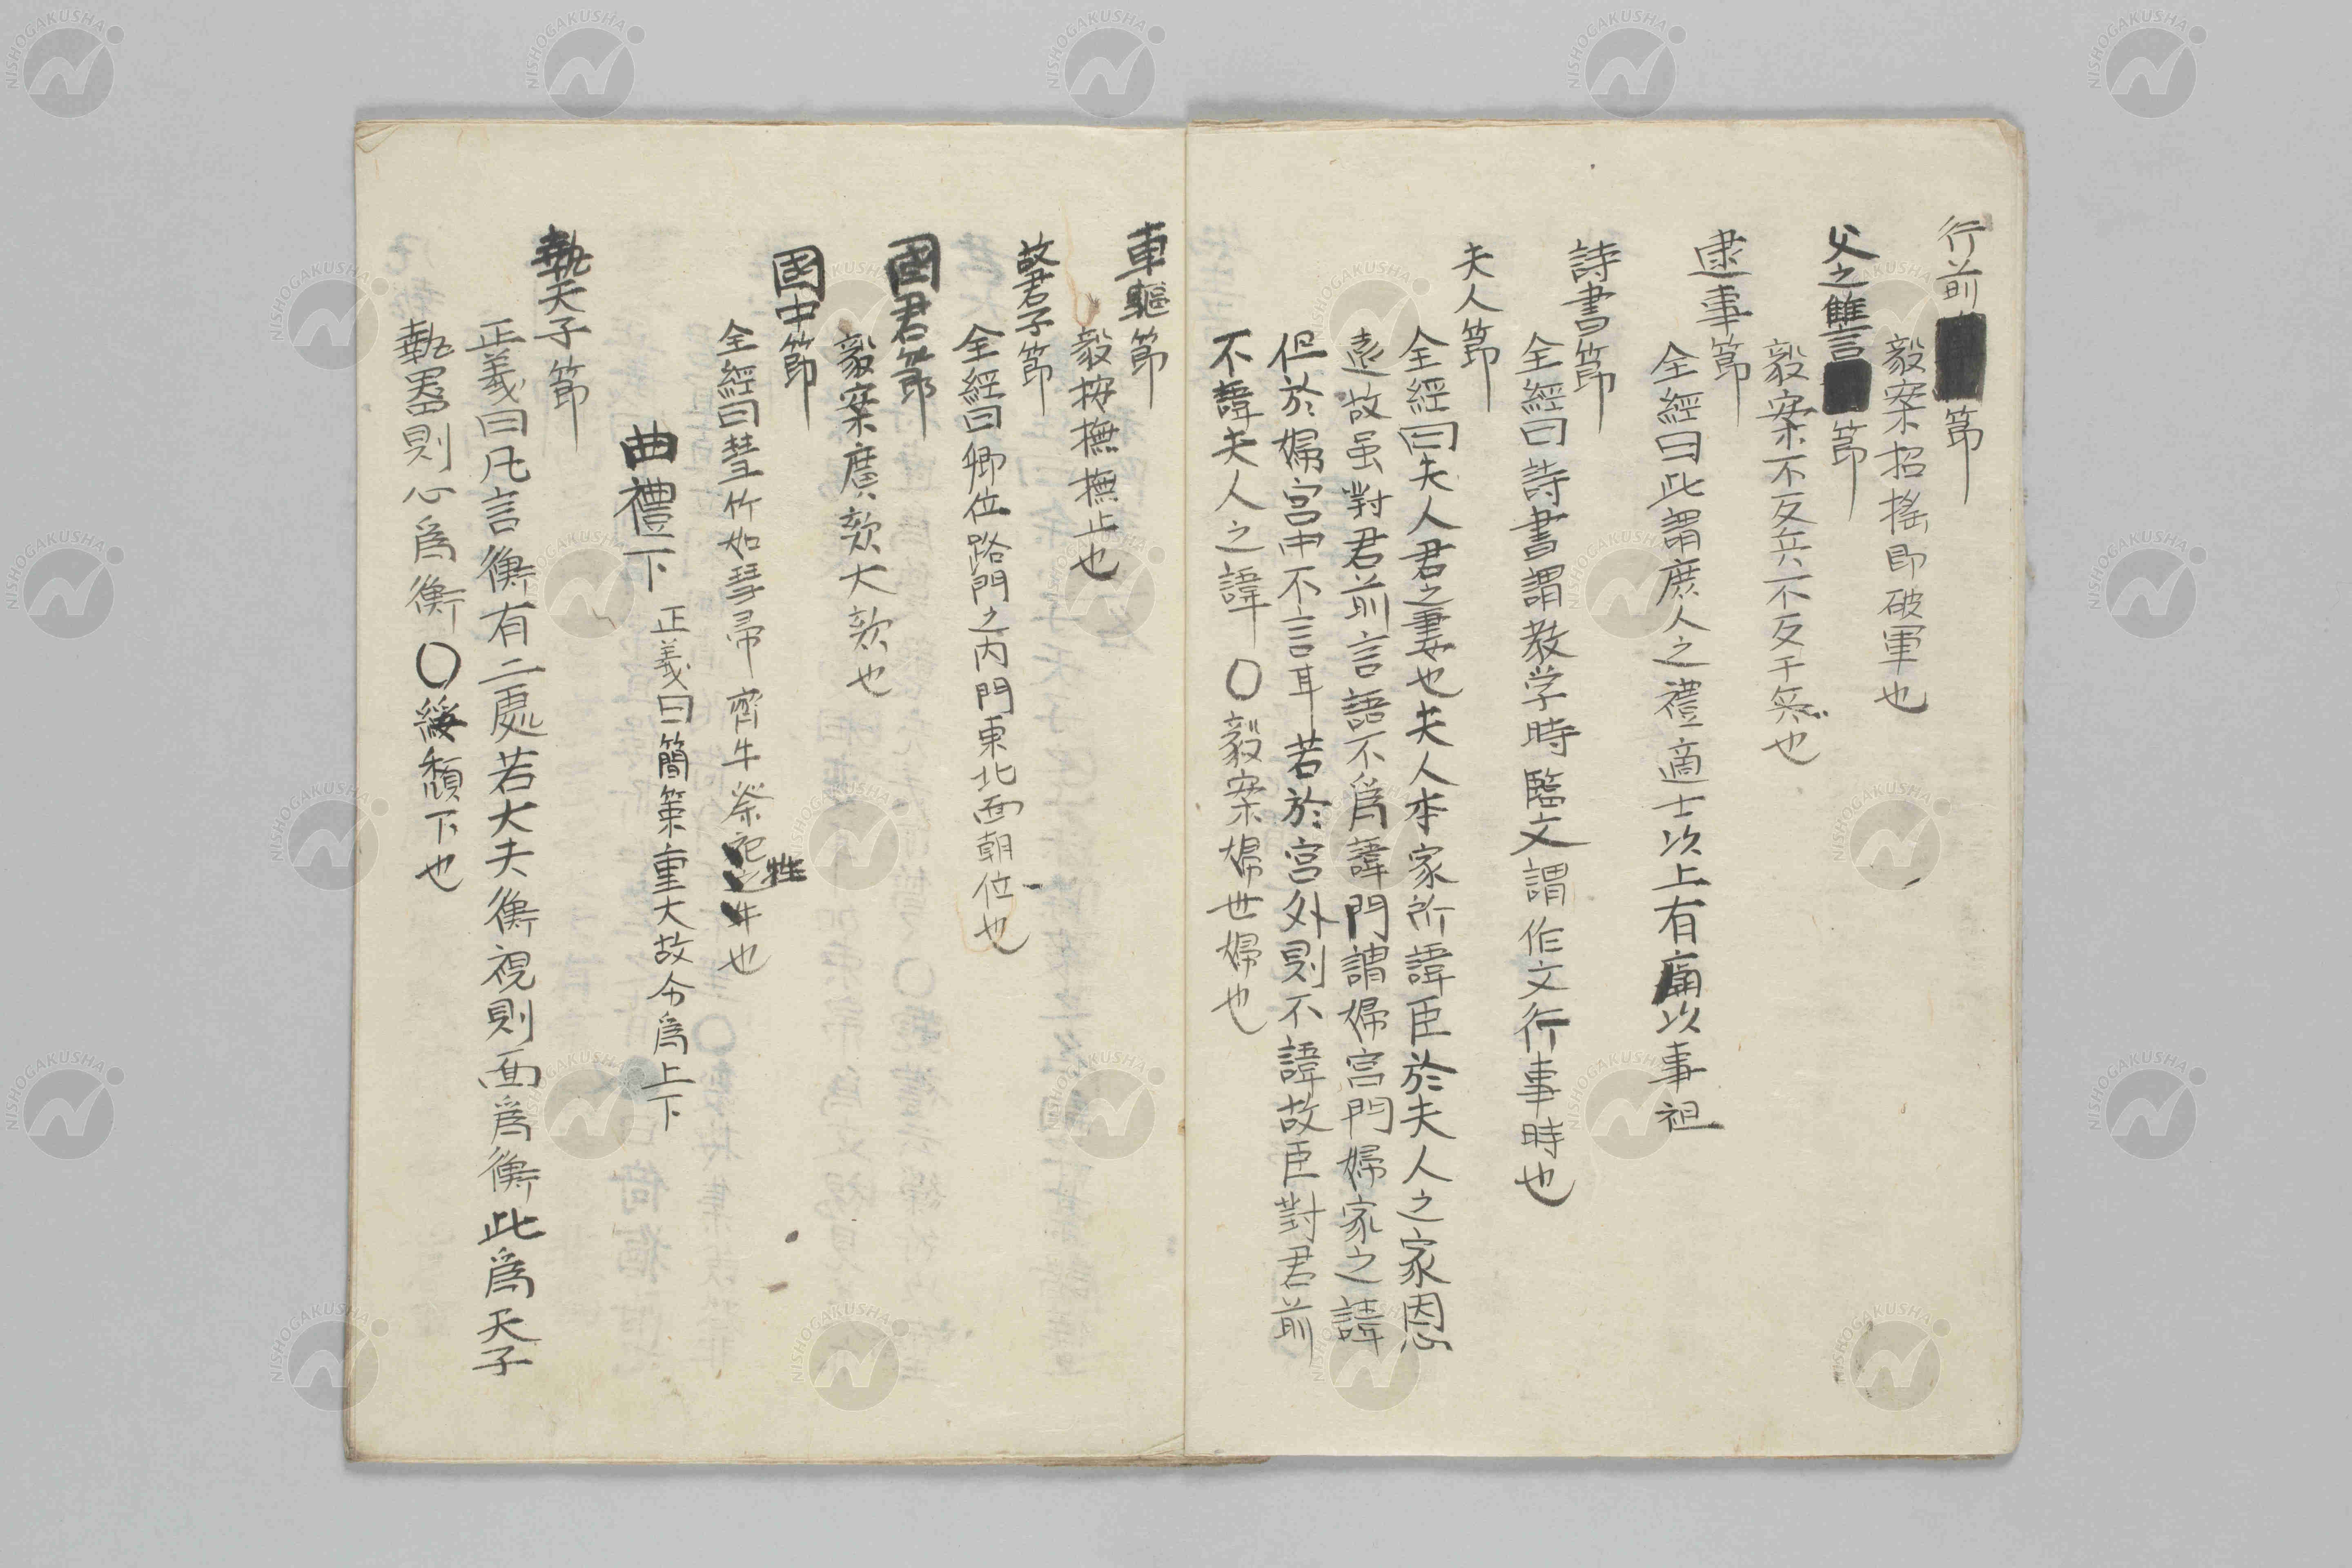 行前節
毅案招搖即破軍也
父之讐節
毅案不反兵不反于兵也
逮事節
全經曰此謂庶人之禮適士以上有廟以事祖
詩書節
全經曰詩書謂教学時臨文謂作文行事時也
夫人節
全經曰夫人君之妻也夫人本家所諱臣於夫人之家恩
遠故虽對君前言語不爲諱門謂婦宮門婦家之諱
但於婦宮中不言耳若於宮外則不諱故臣對君前
不諱夫人之諱〇毅案婦世婦也
車驅節
毅按撫撫止也
故君子節
全經曰卿位路門之内門東北面朝位也
國君節
毅案廣欬大欬也
國中節
全經曰彗竹如彗帚齊牛祭祀牲牛也
曲禮下 正義曰簡策重大故分爲上下
執天子節
正義曰凡言衡有二處若大夫衡視則面爲衡此爲天子
執器則心爲衡〇綏頽下也
NISHOGAKUSHA